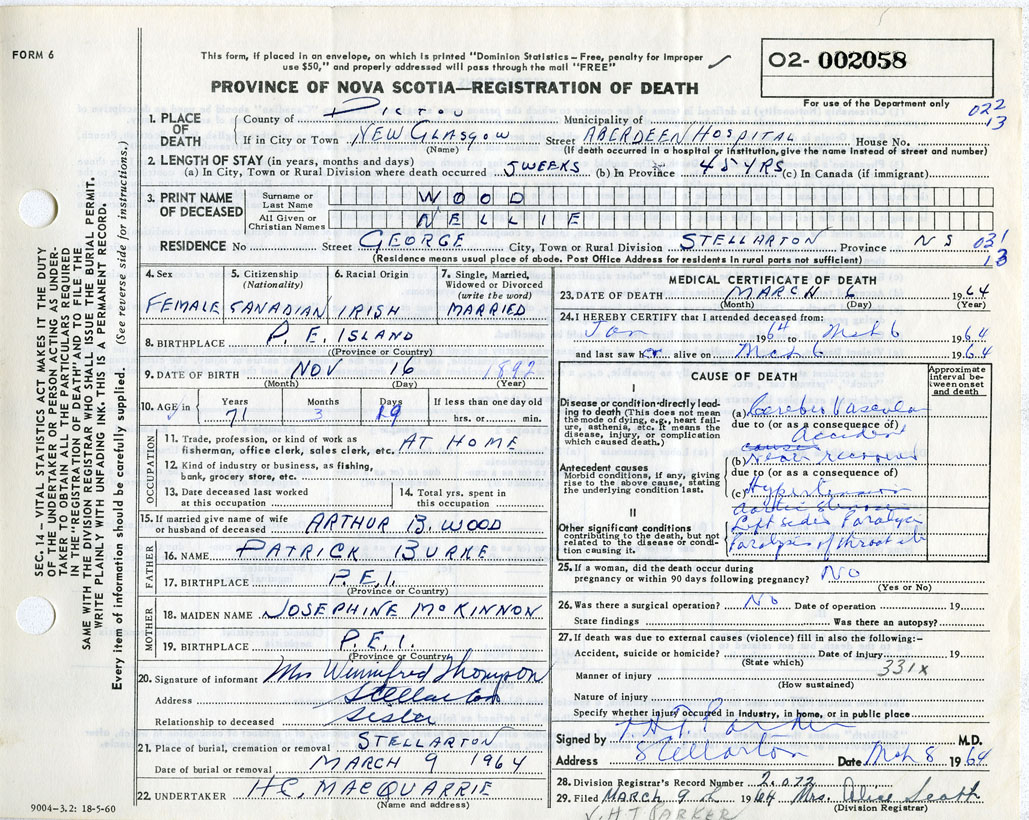 FORM 6
This form, if placed in an envelope, on which is printed "Dominion Statistics – Free, penalty for improper
use $50," and properly addressed will pass through the mail "FREE"
PROVINCE OF NOVA SCOTIA—REGISTRATION OF DEATH
02- 002058
For use of the Department only
022
13
1. PLACE OF DEATH
County of PICTOU Municipality of
If in City or Town NEW GLASGOW Street ABERDEEN HOSPITAL House No.
(Name) (If death occurred in a hospital or institution, give the name instead of street and number)
2. LENGTH OF STAY (in years, months and days)
(a) In City, Town or Rural Division where death occurred 5 WEEKS (b) In Province 45 YRS (c) In Canada (if immigrant)
3. PRINT NAME OF DECEASED
Surname or Last Name WOOD
All Given or Christian Names NELLIE
RESIDENCE No Street GEORGE City, Town or Rural Division STELLARTON Province NS 031
(Residence means usual place of abode. Post Office Address for residents in rural parts not sufficient) 13
4. Sex FEMALE
5. Citizenship (Nationality) CANADIAN
6. Racial Origin IRISH
7. Single, Married, Widowed or Divorced (write the word) MARRIED
8. BIRTHPLACE P. E. ISLAND
(Province or Country)
9. DATE OF BIRTH NOV 16 1892
(Month) (Day) (Year)
10. AGE in Years 71 Months 3 Days 19 If less than one day old
hrs. or min.
OCCUPATION
11. Trade, profession, or kind of work as
fisherman, office clerk, sales clerk, etc. AT HOME
12. Kind of industry or business, as fishing,
bank, grocery store, etc.
13. Date deceased last worked
at this occupation
14. Total yrs. spent in
this occupation
15. If married give name of wife
or husband of deceased ARTHUR B. WOOD
FATHER
16. NAME PATRICK BURKE
17. BIRTHPLACE P.E.I.
(Province or Country)
MOTHER
18. MAIDEN NAME JOSEPHINE McKINNON
19. BIRTHPLACE P.E.I.
(Province or Country)
20. Signature of informant Mrs Winnifred Thompson
Address Stellarton
Relationship to deceased Sister
21. Place of burial, cremation or removal STELLARTON
Date of burial or removal MARCH 9 1964
22. UNDERTAKER H.C. MACQUARRIE
(Name and address)
MEDICAL CERTIFICATE OF DEATH
23. DATE OF DEATH MARCH 6 1964
(Month) (Day) (Year)
24. I HEREBY CERTIFY that I attended deceased from:
Jan 1964 to Mch 6 1964
and last saw her alive on Mch 6 1964
CAUSE OF DEATH
Approximate interval between onset and death
I
Disease or condition directly leading to death (This does not mean
the mode of dying, e.g., heart failure, asthenia, etc. It means the
disease, injury, or complication
which caused death.)
(a) Cerebro Vascular
due to (or as a consequence of)
Accident
(b)
due to (or as a consequence of)
Antecedent causes
Morbid conditions, if any, giving
rise to the above cause, stating
the underlying condition last.
(c) Hypertension
II
Other significant conditions
contributing to the death, but not
related to the disease or condition causing it.
Left sided Paralysis
Paralysis of throat
25. If a woman, did the death occur during
pregnancy or within 90 days following pregnancy? NO
(Yes or No)
26. Was there a surgical operation? No Date of operation 19
State findings Was there an autopsy?
27. If death was due to external causes (violence) fill in also the following:–
Accident, suicide or homicide? Date of injury 19
(State which) 331x
Manner of injury
(How sustained)
Nature of injury
Specify whether injury occurred in industry, in home, or in public place
Signed by M.D.
Address Stellarton Date Mch 8 1964
28. Division Registrar's Record Number 2072
29. Filed MARCH 9 1964 Mrs. Alice Scott
(Division Registrar)
H T PARKER
SEC. 14 – VITAL STATISTICS ACT MAKES IT THE DUTY
OF THE UNDERTAKER OR PERSON ACTING AS UNDER-
TAKER TO OBTAIN ALL THE PARTICULARS REQUIRED
IN THE "REGISTRATION OF DEATH" AND TO FILE THE
SAME WITH THE DIVISION REGISTRAR WHO SHALL ISSUE THE BURIAL PERMIT.
WRITE PLAINLY WITH UNFADING INK. THIS IS A PERMANENT RECORD.
Every item of information should be carefully supplied. (See reverse side for instructions.)
9004-3.2: 18-5-60